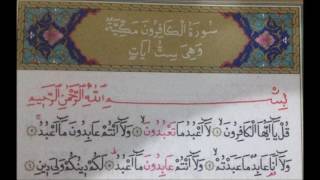 سُورَةُ الْكَافِرُونَ مَكِّيَّةٌ
وَهِيَ سِتُّ آيَاتٍ
بِسْمِ اللّٰهِ الرَّحْمٰنِ الرَّحِيمِ
قُلْ يَا أَيُّهَا الْكَافِرُونَ ۝ لَا أَعْبُدُ مَا تَعْبُدُونَ ۝ وَلَا أَنْتُمْ عَابِدُونَ مَا أَعْبُدُ ۝
وَلَا أَنَا عَابِدٌ مَا عَبَدْتُمْ ۝ وَلَا أَنْتُمْ عَابِدُونَ مَا أَعْبُدُ ۝ لَكُمْ دِينُكُمْ وَلِيَ دِينِ ۝